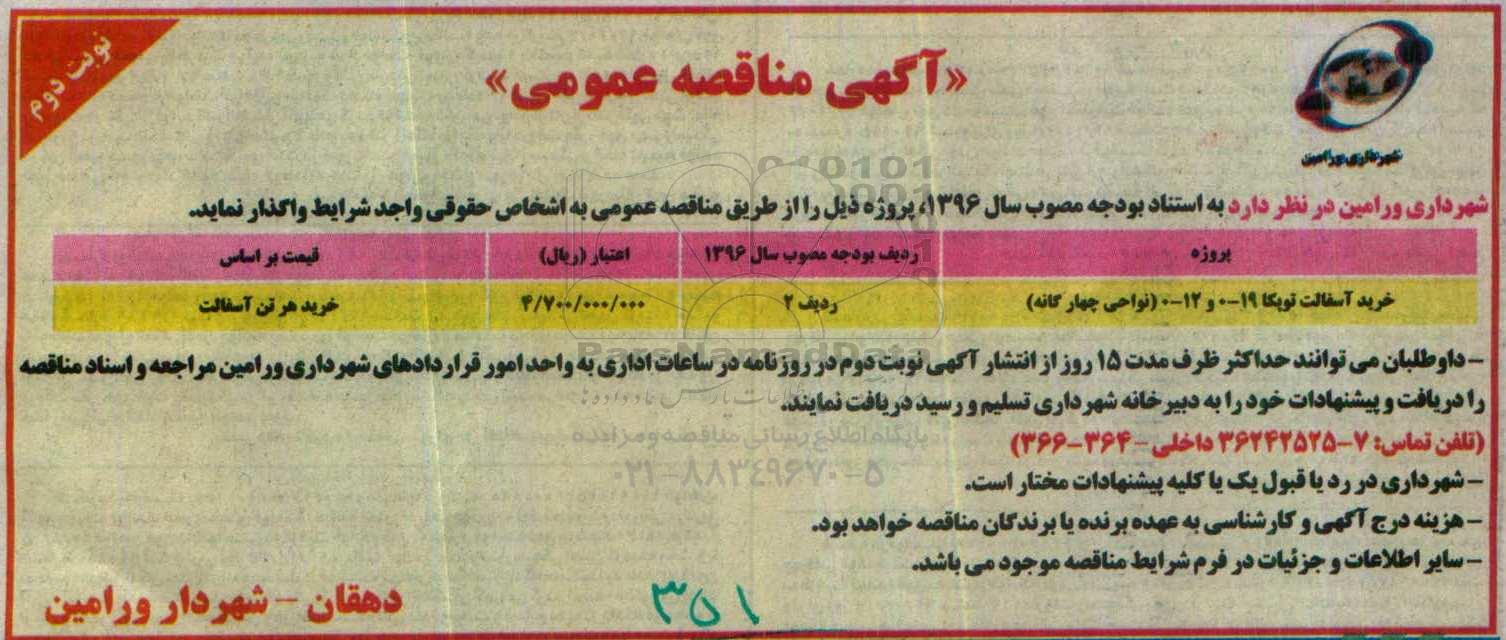 نوبت دوم
«آگهی مناقصه عمومی»
شهرداری ورامین
شهرداری ورامین در نظر دارد به استناد بودجه مصوب سال ۱۳۹۶، پروژه ذیل را از طریق مناقصه عمومی به اشخاص حقوقی واجد شرایط واگذار نماید.
پروژه ردیف بودجه مصوب سال ۱۳۹۶ اعتبار (ریال) قیمت بر اساس
خرید آسفالت توپکا ۱۹-۰ و ۱۲-۰ (نواحی چهار گانه) ردیف ۲ ۴/۷۰۰/۰۰۰/۰۰۰ خرید هر تن آسفالت
- داوطلبان می توانند حداکثر ظرف مدت ۱۵ روز از انتشار آگهی نوبت دوم در روزنامه در ساعات اداری به واحد امور قراردادهای شهرداری ورامین مراجعه و اسناد مناقصه
را دریافت و پیشنهادات خود را به دبیرخانه شهرداری تسلیم و رسید دریافت نمایند.
(تلفن تماس: ۷-۳۶۲۴۲۵۲۵ داخلی - ۳۶۴-۳۶۶)
- شهرداری در رد یا قبول یک یا کلیه پیشنهادات مختار است.
- هزینه درج آگهی و کارشناسی به عهده برنده یا برندگان مناقصه خواهد بود.
- سایر اطلاعات و جزئیات در فرم شرایط مناقصه موجود می باشد.
دهقان - شهردار ورامین
۳۵۱
ParsNamadData
پایگاه اطلاع رسانی مناقصه و مزایده
۰۲۱-۸۸۳۴۹۶۷۰-۵